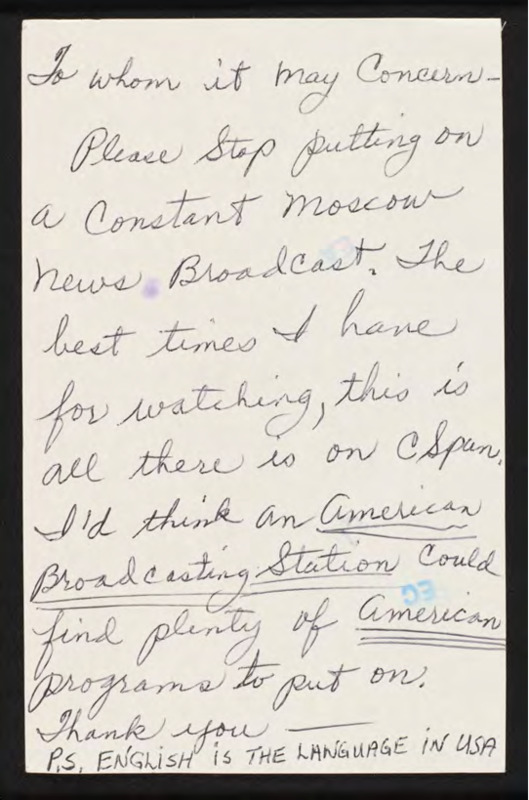 To whom it may Concern -
Please Stop putting on
a Constant Moscow
News Broadcast. The
best times I have
for watching, this is
all there is on CSpan.
I'd think an American
Broadcasting Station Could
find plenty of American
programs to put on.
Thank you —
P.S. ENGLISH iS THE LANGUAGE iN USA